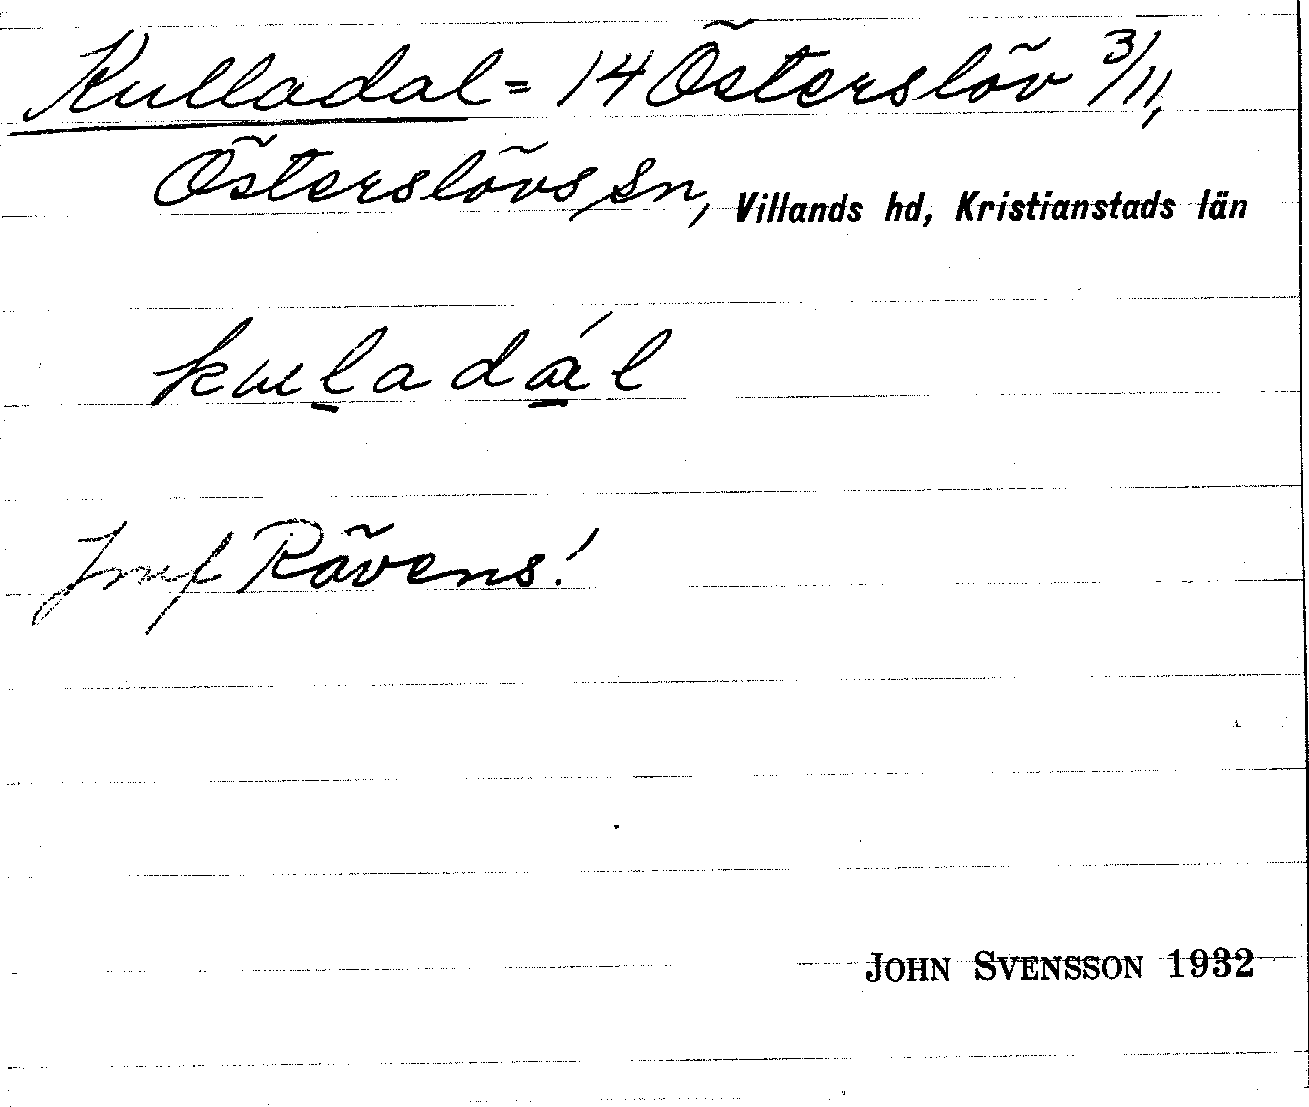 Kulladal = 14 Österslöv 3/11,
Österslövs sn, Villands hd, Kristianstads län
kuladál
Rävens!
JOHN SVENSSON 1932